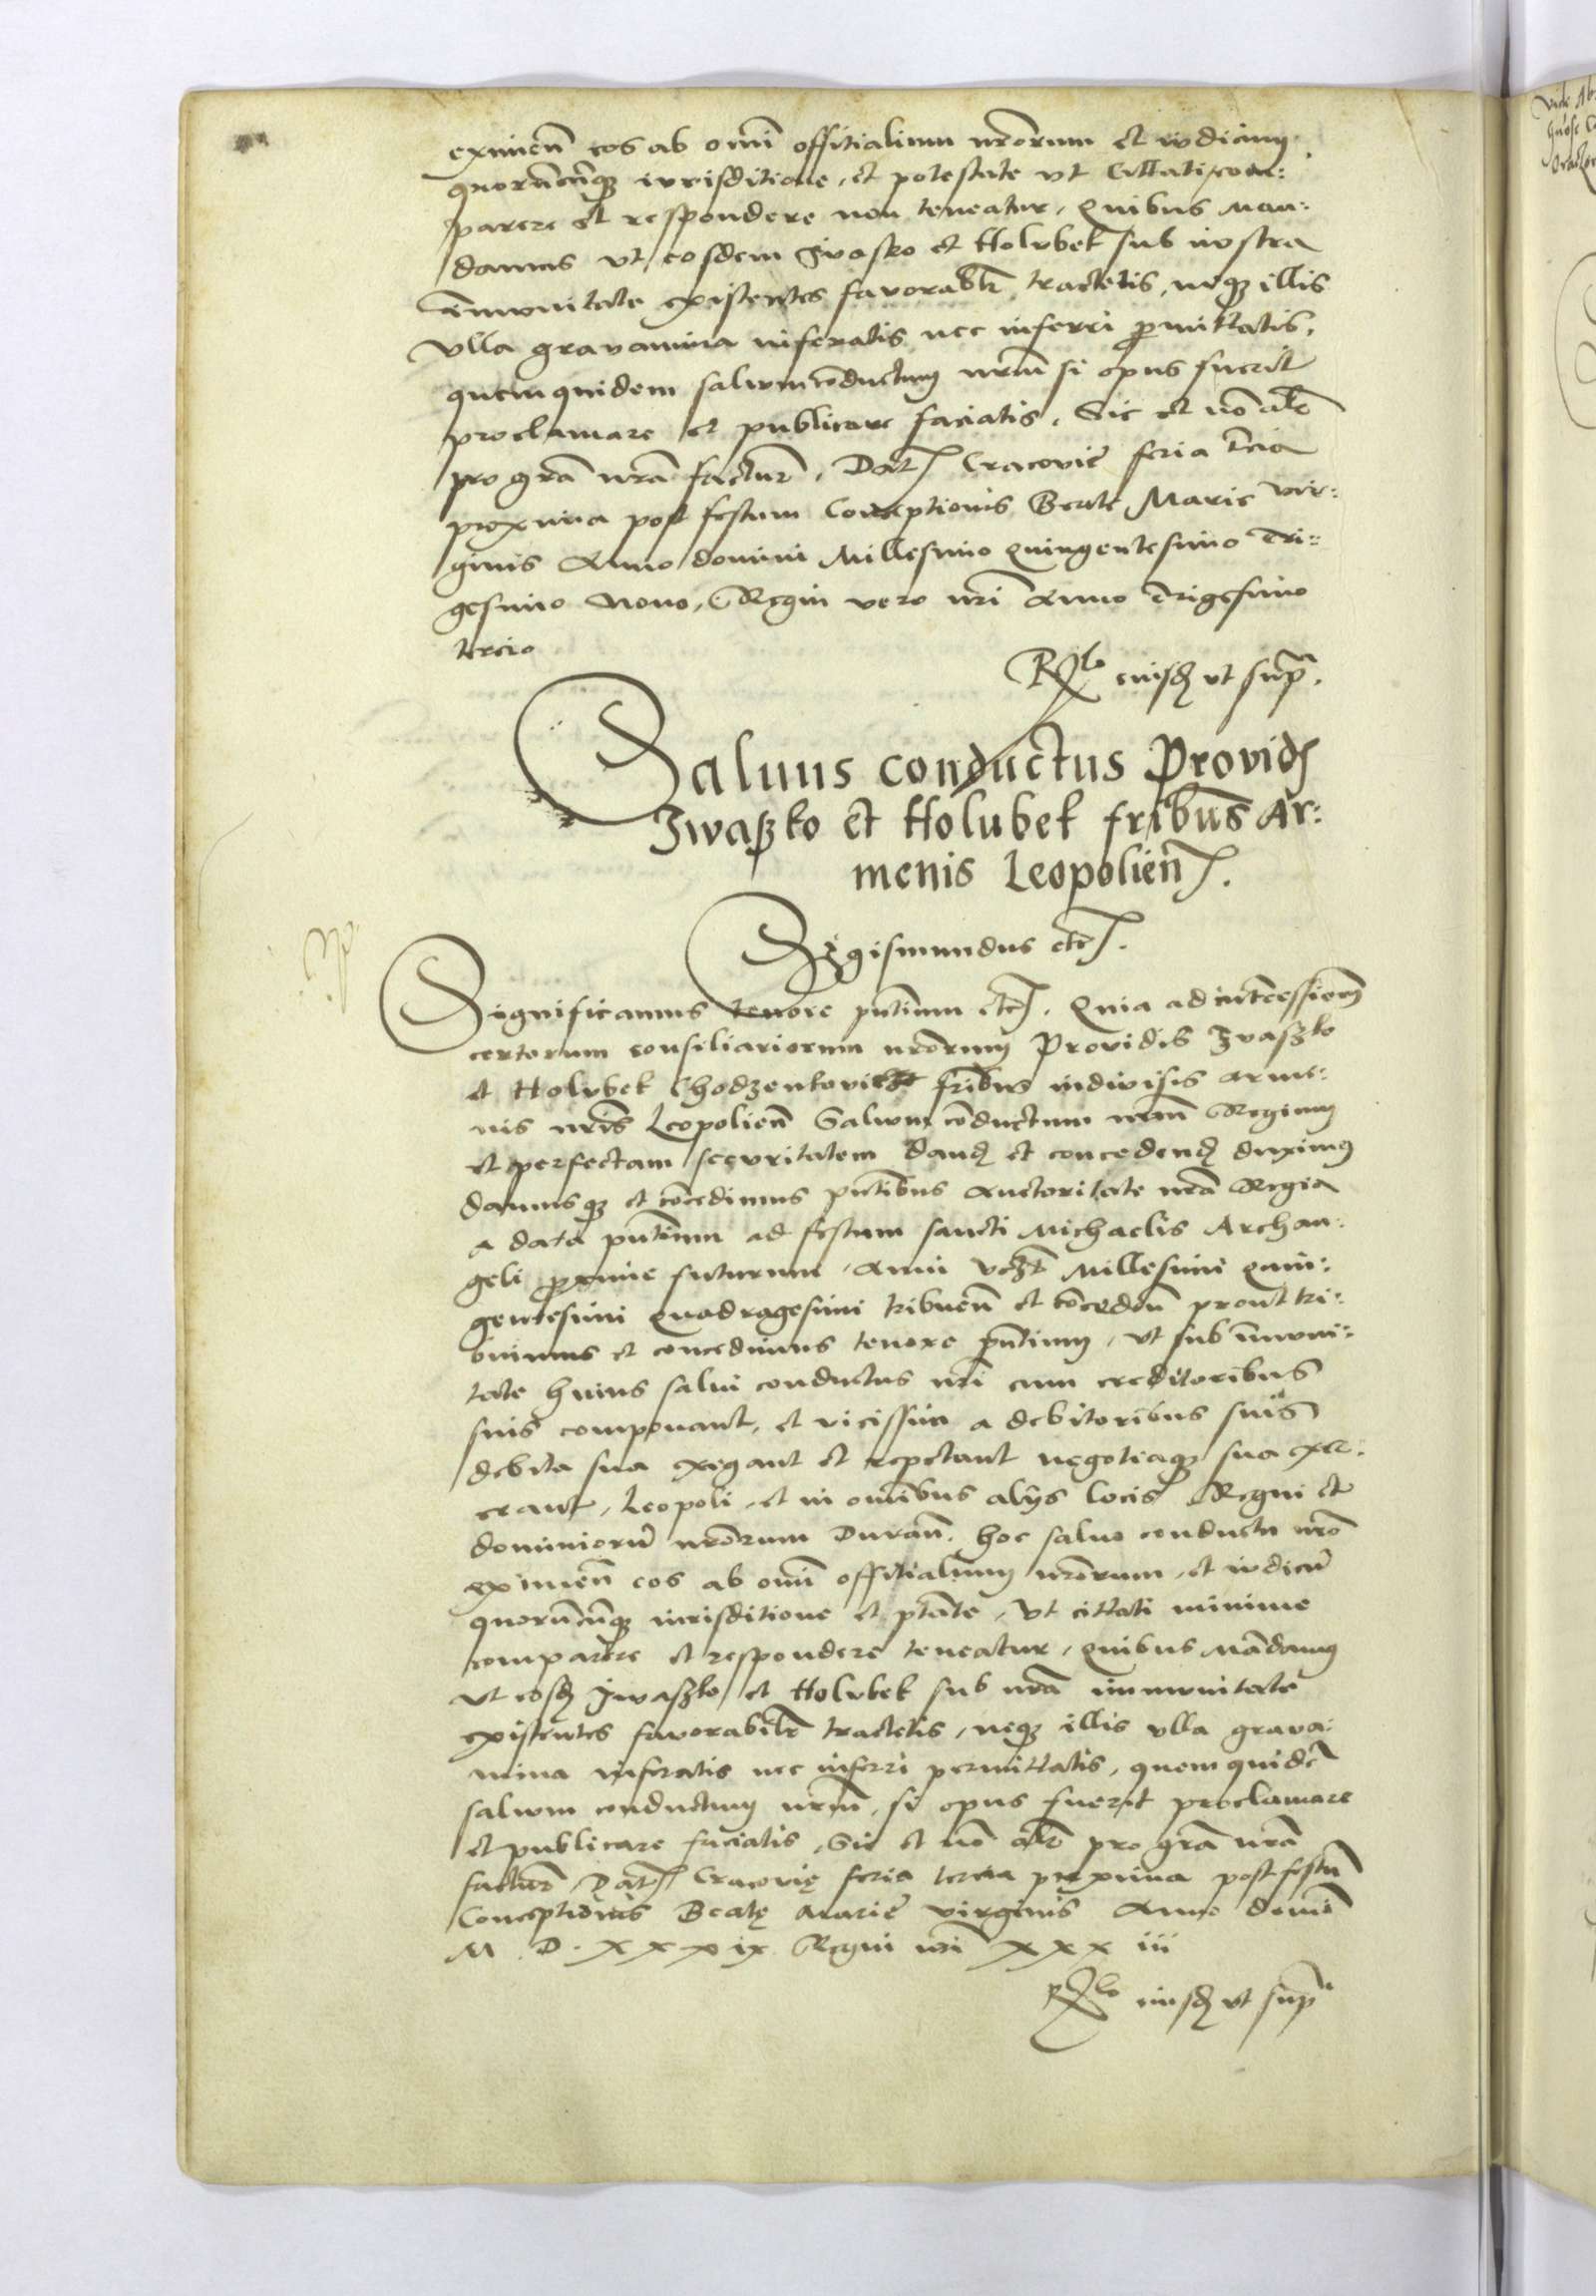 eximen̄ eos ab omni offitialium nrōrum et iudicum
quorūcūq3 iurisditione, et potestate vt Cittati com:
parere et respondere non teneatur, Quibus Man:
damus vt eosdem Ivasko et Holubek sub nostra
immunitate existentes favorabłr tractetis, neq3 illis
vlla gravamina inferatis nec inferri ꝑmittatis,
quemquidem salvum cōductum nrūm si opus fuerit
proclamare et publicare faciatis, Sic et nō alr̄
pro grā nrā factur̄, Dat Cracovie feria t̄cia
proxima post festum Conceptionis Beate Marie vir:
ginis Anno domini Millesimo Quingentesimo Tri:
gesimo Nono, Regni vero nr̄i Anno Trigesimo
tercio
Rlo eiusd vt supra.
Saluus conductus Provid
Iwaszko et Holubek fribus Ar:
menis Leopolien.
Sigismundus etc.
Significamus tenore pn̄tium etc. Quia ad intercessionem
certorum consiliariorum nrōrum Providis Ivaszko
et Holubek Chodzenkovicze fribus indivisis arme:
nis nrīs Leopolien̄ Salvum cōductum nrūm Regium
et perfectam securitatem dand et concedend duximus
damusq3 et cōcedimus pn̄tibus Auctoritate nrā Regia
a data pn̄tium ad festum sancti Michaelis Archan:
geli ꝓxime futurum, Anni vczt Millesimi Quin:
gentesimi Quadragesimi tribuen̄ et cōceden̄ prout tri:
buimus et concedimus tenore pn̄tium, vt sub immuni:
tate huius salui conductus nr̄i cum creditoribus
suis componant, et vicissim a debitoribus suis
debita sua exigant et repetant negotiaq3 sua exer:
ceant, Leopoli, et in omibus alijs locis Regni et
dominiorū nrōrum Duran̄. hoc saluo conductu nrō
eximen̄ eos ab omni offitialium nrōrum, et iudicū
quorūcūq3 iurisditione et ptāte, Vt cittati minime
comparere et respondere teneatur, Quibus Mādamus
Vt eosd Iwaszko et Holubek sub nrā immunitate
existentes favorabilr̄ tractetis, neq3 illis vlla grava:
mina inferatis nec inferri permittatis, quem quidē
salvum conductum nrūm, si opus fuerit proclamare
et publicare faciatis, Sic et nō alr̄ pro grā nrā
factur̄, Dat Cracovię feria tercia proxima post festū
Conceptionis Beatę Marie virginis Anno domī
M. D. xxxix Regni nr̄i xxxiii
Rlo eiusd vt supra